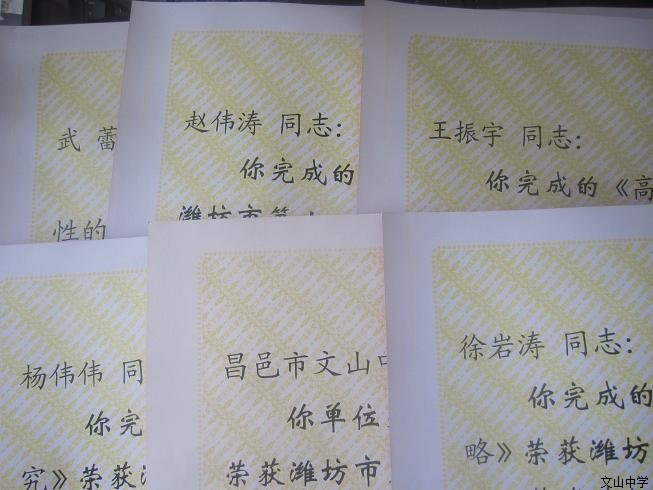 武 蕾
性的
赵伟涛 同志：
你完成的
潍坊市第
王振宇 同志：
你完成的《高
杨伟伟 同
你完
究》荣获
昌邑市文山
你单位
荣获潍坊市
徐岩涛 同志：
你完成的
略》荣获潍坊
文山中学